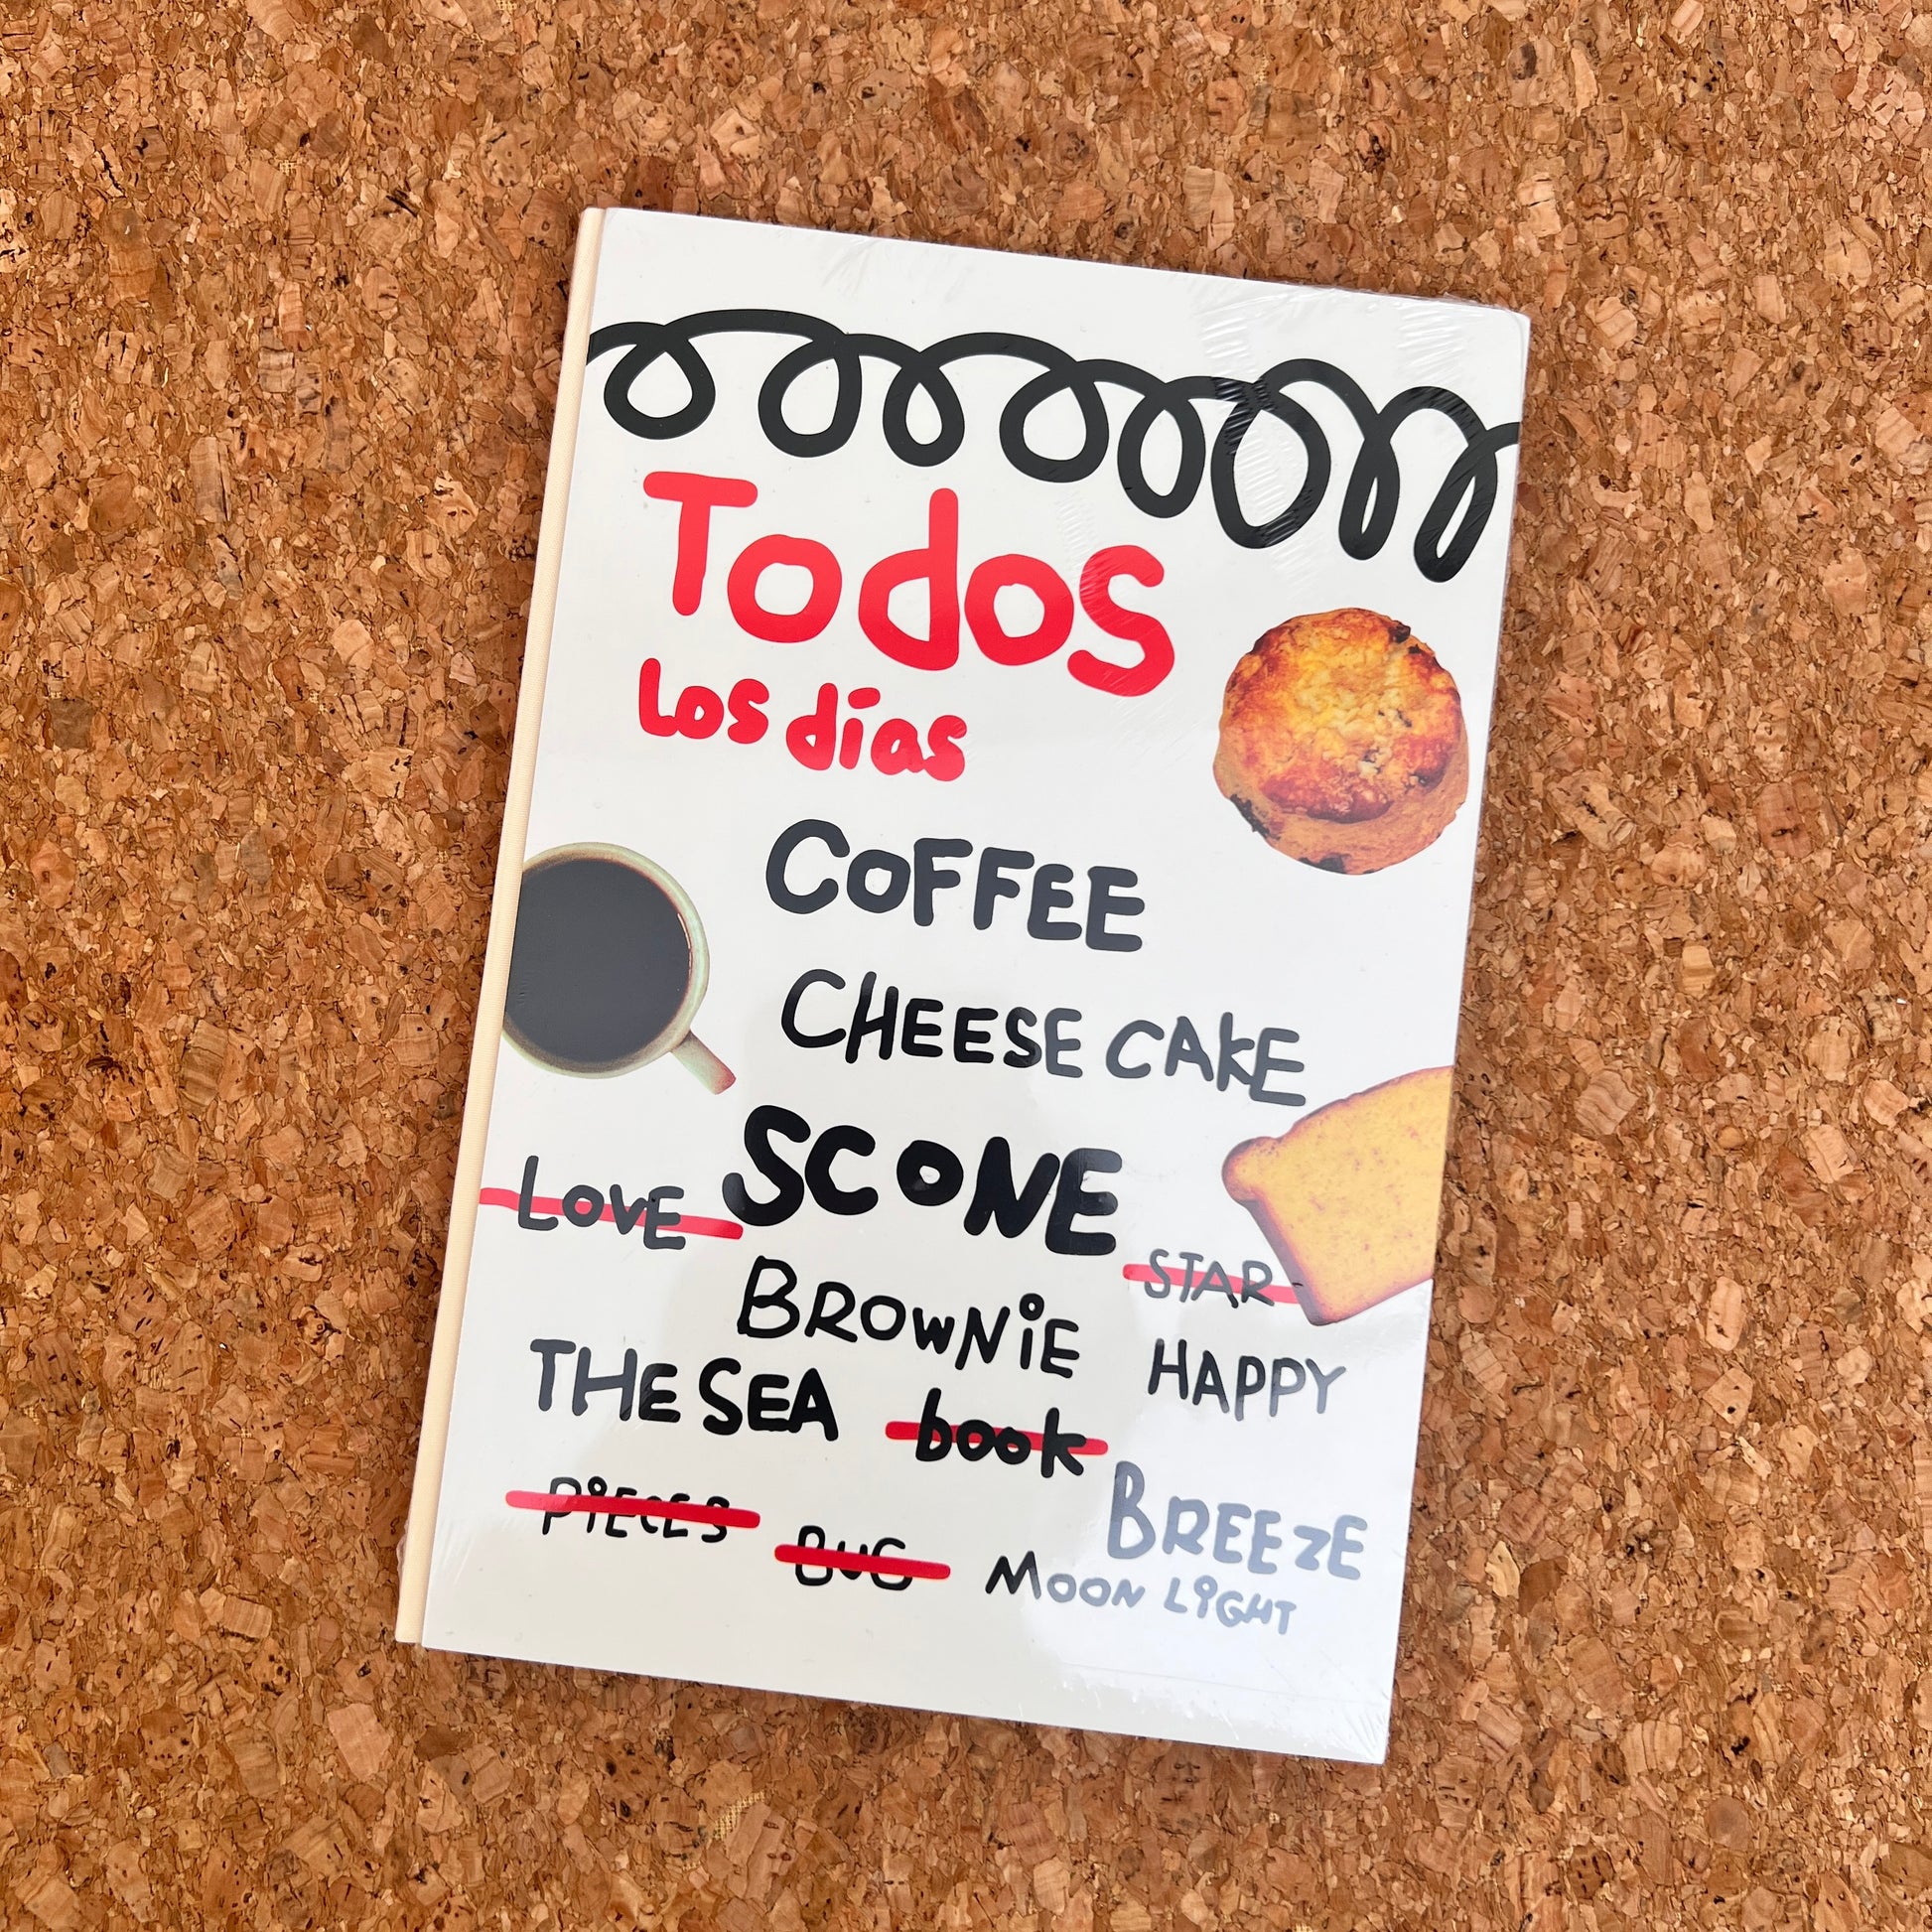 Todos
los días
COFFEE
CHEESE CAKE
SCONE
LOVE
STAR
BROWNiE
HAPPY
THE SEA
book
PiECES
BREEZE
BUG
MOON LiGHT